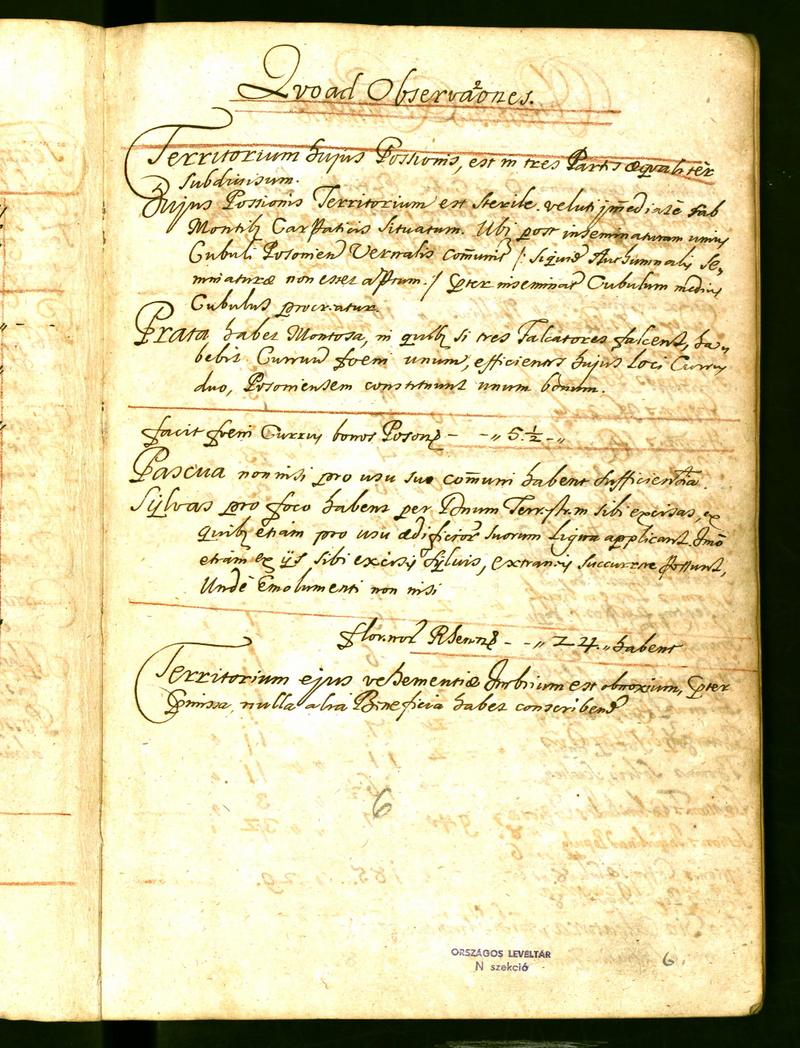 Qvoad Observa͠ones.
Territorium hujus Possionis, est in tres Partes æqvalitèr
Subdivisum.
Hujus Possionis Territorium est sterile. veluti im̄ediatè sub
Montib9 Carpaticis situatum. Ubj post inseminaturam unius
Cubuli Posonien Vernalis com̄unis /: siquid Authumnalis Se-
minaturæ non esset aptum :/ pter inseminat Cubulum medius
Cubulus procreatur.
Prata habet Montosa, in quib9 si tres Falcatores falcent, ha-
bebit Currum foeni unum, efficientes hujus loci Currus
duo, Posoniensem constituunt unum bonum.
facit foeni Currus bonos Poson - - „ 5.½ - „
Pascua non nisi pro usu suo com̄uni habent sufficientia.
Sylvas pro foco habent per Dnum Terrestrem sibi excisas, ex
quib9 etiam pro usu ædificior suorum Ligna applicant. Imò
etiam ex ijs sibi excisis sylvis, extraneis succurrere possunt,
Undè Emolumenti non nisi
floreno Rhen - - „ 24. „ habent
Territorium ejus vehementiæ Imbrium est obnoxium, pter
pmissa, nulla alia Beneficia habet conscribend
6
ORSZÁGOS LEVÉLTÁR
N szekció
6.